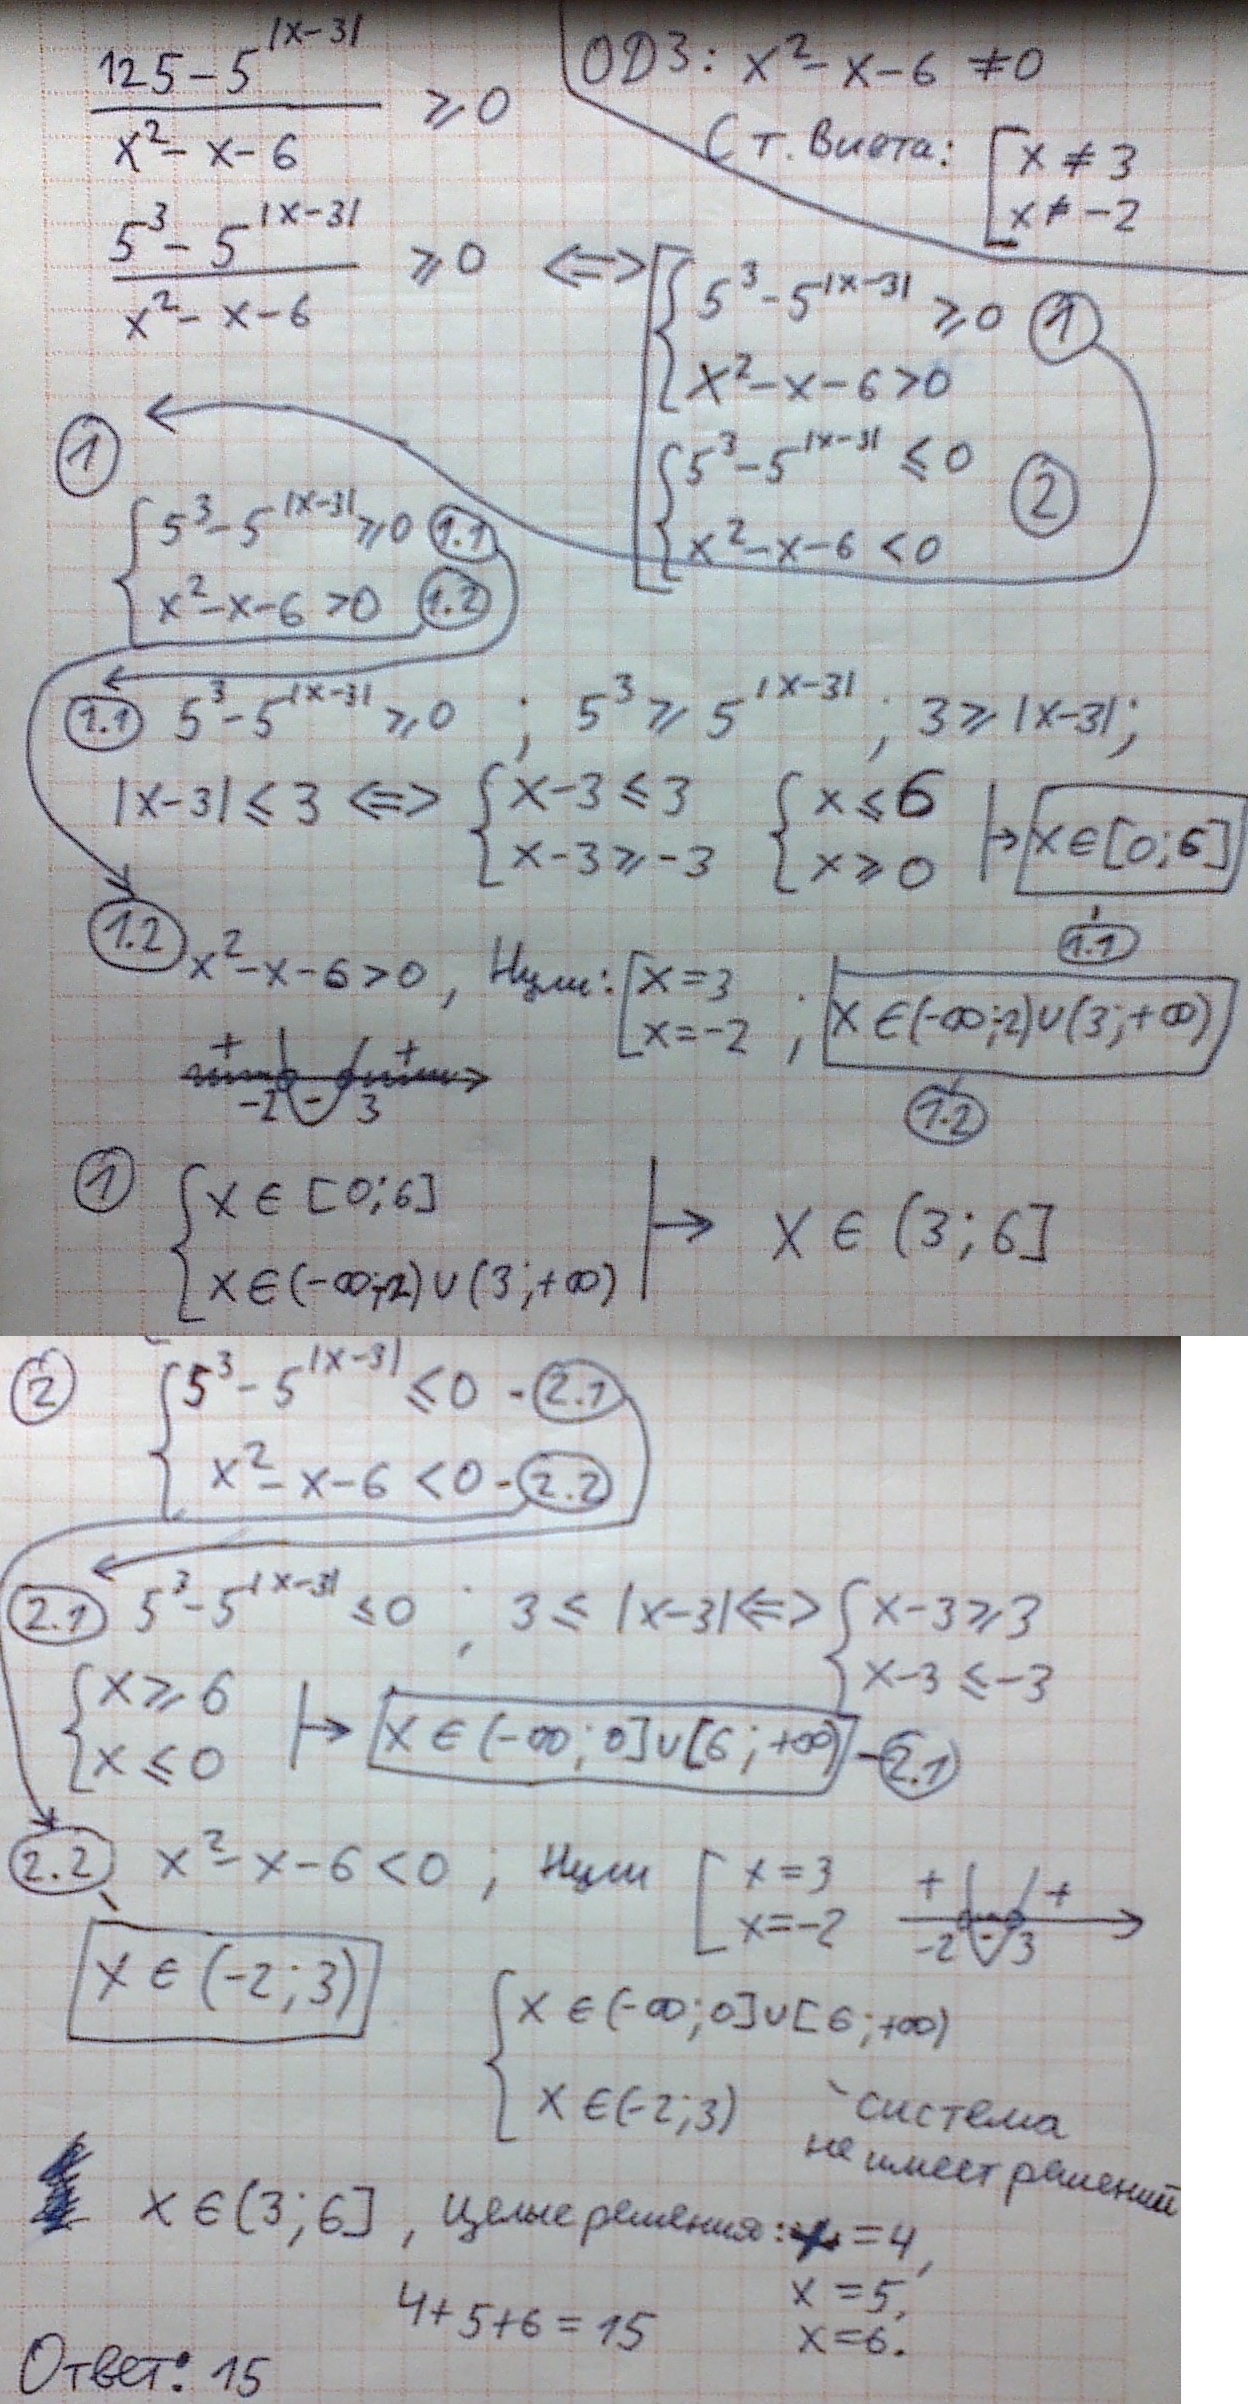 (125 − 5^|x−3|) / (x² − x − 6) ⩾ 0
ОДЗ: x² − x − 6 ≠ 0
С т. Виета: [ x ≠ 3
x ≠ −2
(5³ − 5^|x−3|) / (x² − x − 6) ⩾ 0 <=> [ { 5³ − 5^|x−3| ⩾ 0 ①
x² − x − 6 > 0
{ 5³ − 5^|x−3| ≤ 0 ②
x² − x − 6 < 0
①
{ 5³ − 5^|x−3| ⩾ 0 (1.1)
x² − x − 6 > 0 (1.2)
(1.1) 5³ − 5^|x−3| ⩾ 0 ; 5³ ⩾ 5^|x−3| ; 3 ⩾ |x−3|;
|x−3| ≤ 3 <=> { x−3 ≤ 3 { x ≤ 6 |→ x ∈ [0; 6]
x−3 ⩾ −3 x ⩾ 0
(1.1)
(1.2) x² − x − 6 > 0 , Нули: [ x = 3 ; x ∈ (−∞; −2) ∪ (3; +∞)
x = −2
+ +
−2 − 3
(1.2)
① { x ∈ [0; 6] |→ x ∈ (3; 6]
x ∈ (−∞; −2) ∪ (3; +∞)
② { 5³ − 5^|x−3| ≤ 0 - (2.1)
x² − x − 6 < 0 - (2.2)
(2.1) 5³ − 5^|x−3| ≤ 0 ; 3 ≤ |x−3| <=> { x−3 ⩾ 3
x−3 ≤ −3
{ x ⩾ 6 |→ x ∈ (−∞; 0] ∪ [6; +∞) - (2.1)
x ≤ 0
(2.2) x² − x − 6 < 0 ; Нули [ x = 3
x = −2
+ +
−2 − 3
x ∈ (−2; 3)
{ x ∈ (−∞; 0] ∪ [6; +∞)
x ∈ (−2; 3)
- система
не имеет решений
x ∈ (3; 6] , Целые решения: x = 4,
x = 5,
x = 6.
4 + 5 + 6 = 15
Ответ: 15